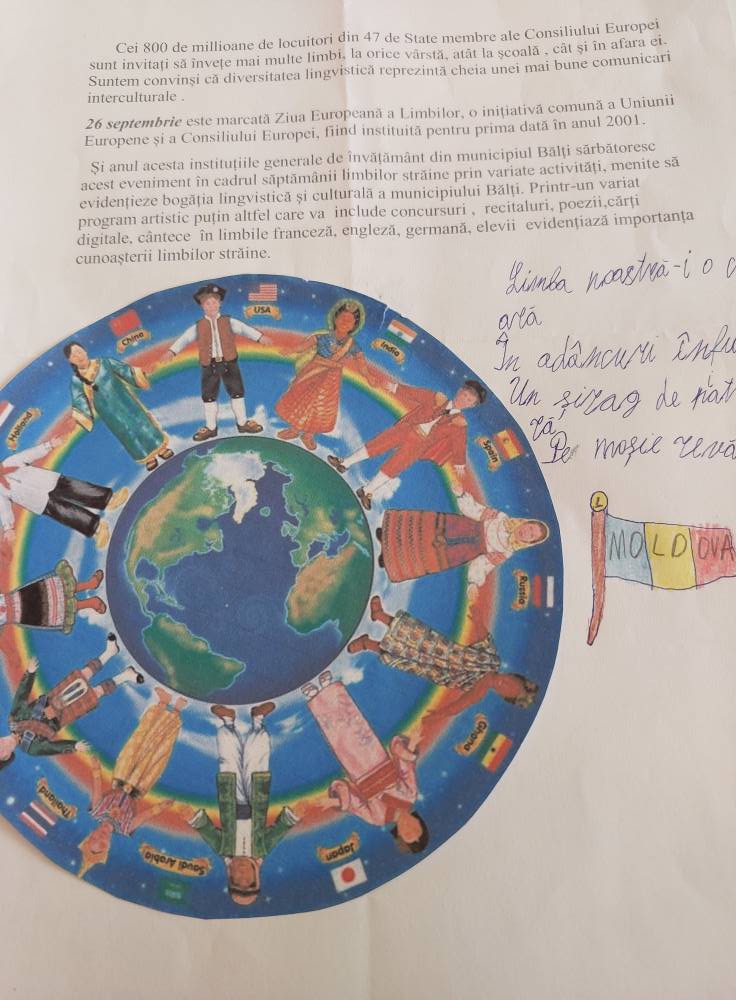 Cei 800 de millioane de locuitori din 47 de State membre ale Consiliului Europei
sunt invitați să învețe mai multe limbi, la orice vârstă, atât la școală , cât și în afara ei.
Suntem convinși că diversitatea lingvistică reprezintă cheia unei mai bune comunicari
interculturale .
26 septembrie este marcată Ziua Europeană a Limbilor, o inițiativă comună a Uniunii
Europene și a Consiliului Europei, fiind instituită pentru prima dată în anul 2001.
Și anul acesta instituțiile generale de învățământ din municipiul Bălți sărbătoresc
acest eveniment în cadrul săptămânii limbilor străine prin variate activități, menite să
evidențieze bogăția lingvistică și culturală a municipiului Bălți. Printr-un variat
program artistic puțin altfel care va include concursuri , recitaluri, poezii,cărți
digitale, cântece în limbile franceză, engleză, germană, elevii evidențiază importanța
cunoașterii limbilor străine.
Limba noastră-i o
ară
În adâncuri
Un șirag de
ră
Pe moșie
MOLDOVA
USA
China
India
Holland
Spain
Russia
Ghana
Thailand
Saudi Arabia
Japan